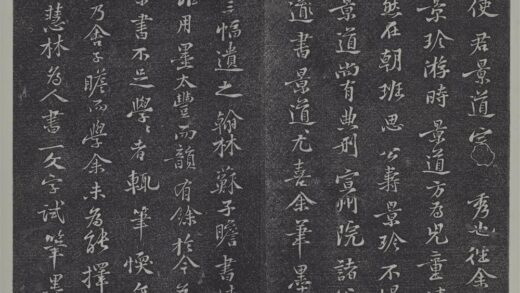 使君景道宗秀也往余
景珍游時景道方為兒童
然在朝班思公壽景珍不得
景道尚有典刑宣州院諸
書景道尤喜余筆墨
三幅遺之翰林蘇子瞻書
用墨太豐而韻有餘於今為
書不足學〻者輒筆愞無
乃舍子瞻而學余未為能擇
慧林為人書一文字試筆墨